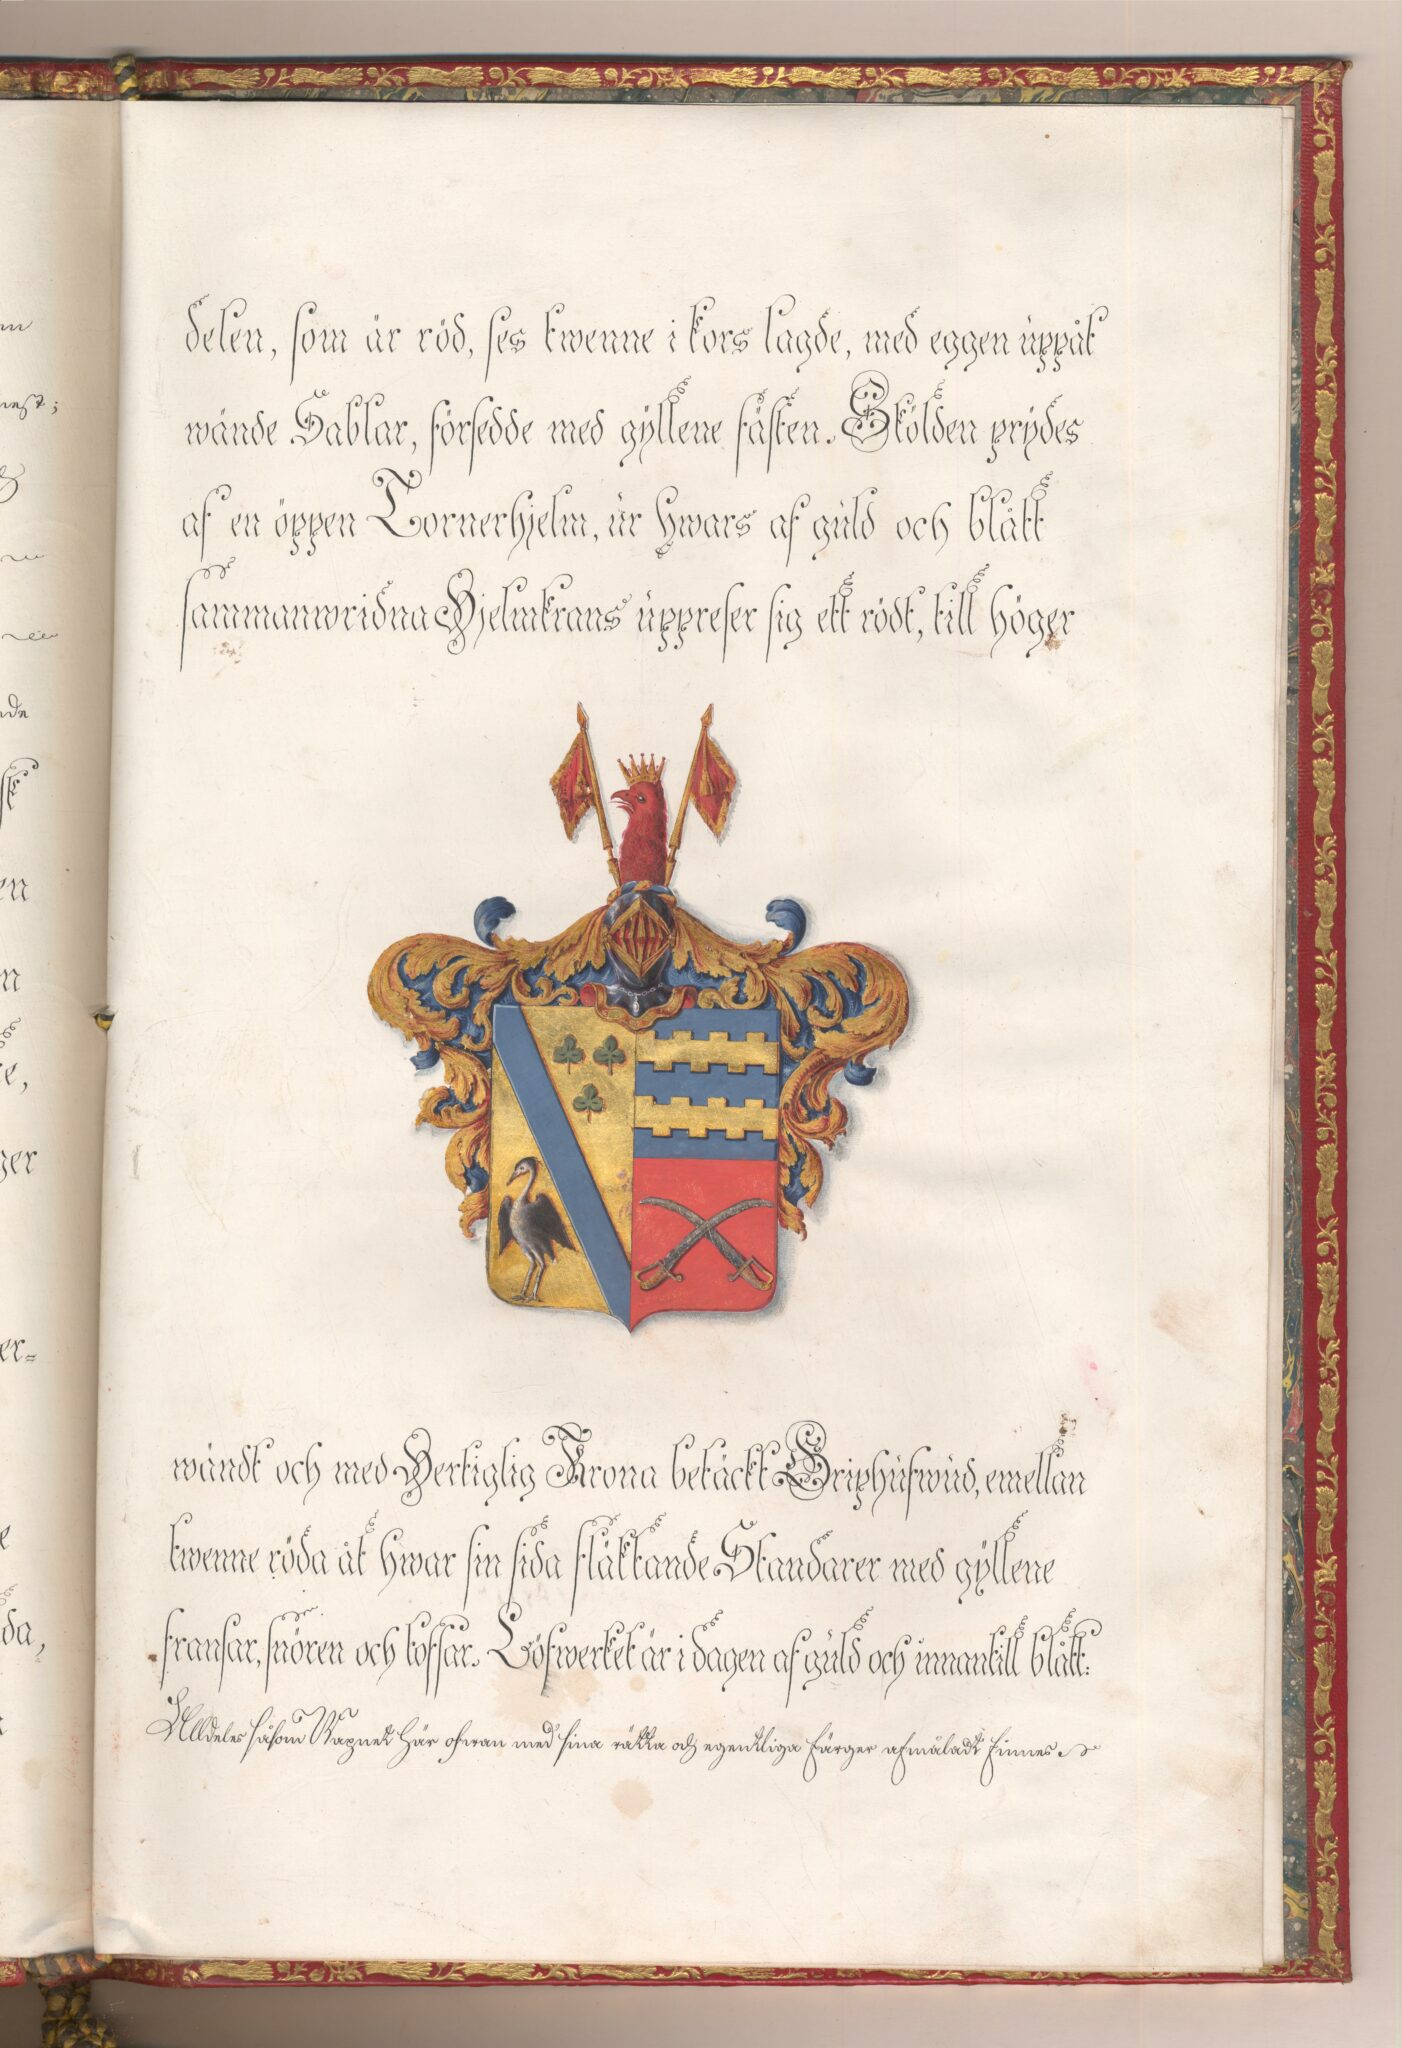 delen, som är röd, ses twenne i kors lagde, med eggen uppåt
wände Sablar, försedde med gyllene fästen. Skölden prydes
af en öppen Tornerhjelm, ur hwars af guld och blått
sammanwridna Hjelmkrans uppreser sig ett rödt, till höger
wändt och med Hertiglig Krona betäckt Griphufwud, emellan
twenne röda åt hwar sin sida fläktande Standarer med gyllene
fransar, snören och tofsar. Löfwerket är i dagen af guld och innantill blått:
Alldeles såsom Wapnet här ofwan med sina rätta och egentliga färger afmåladt finnes